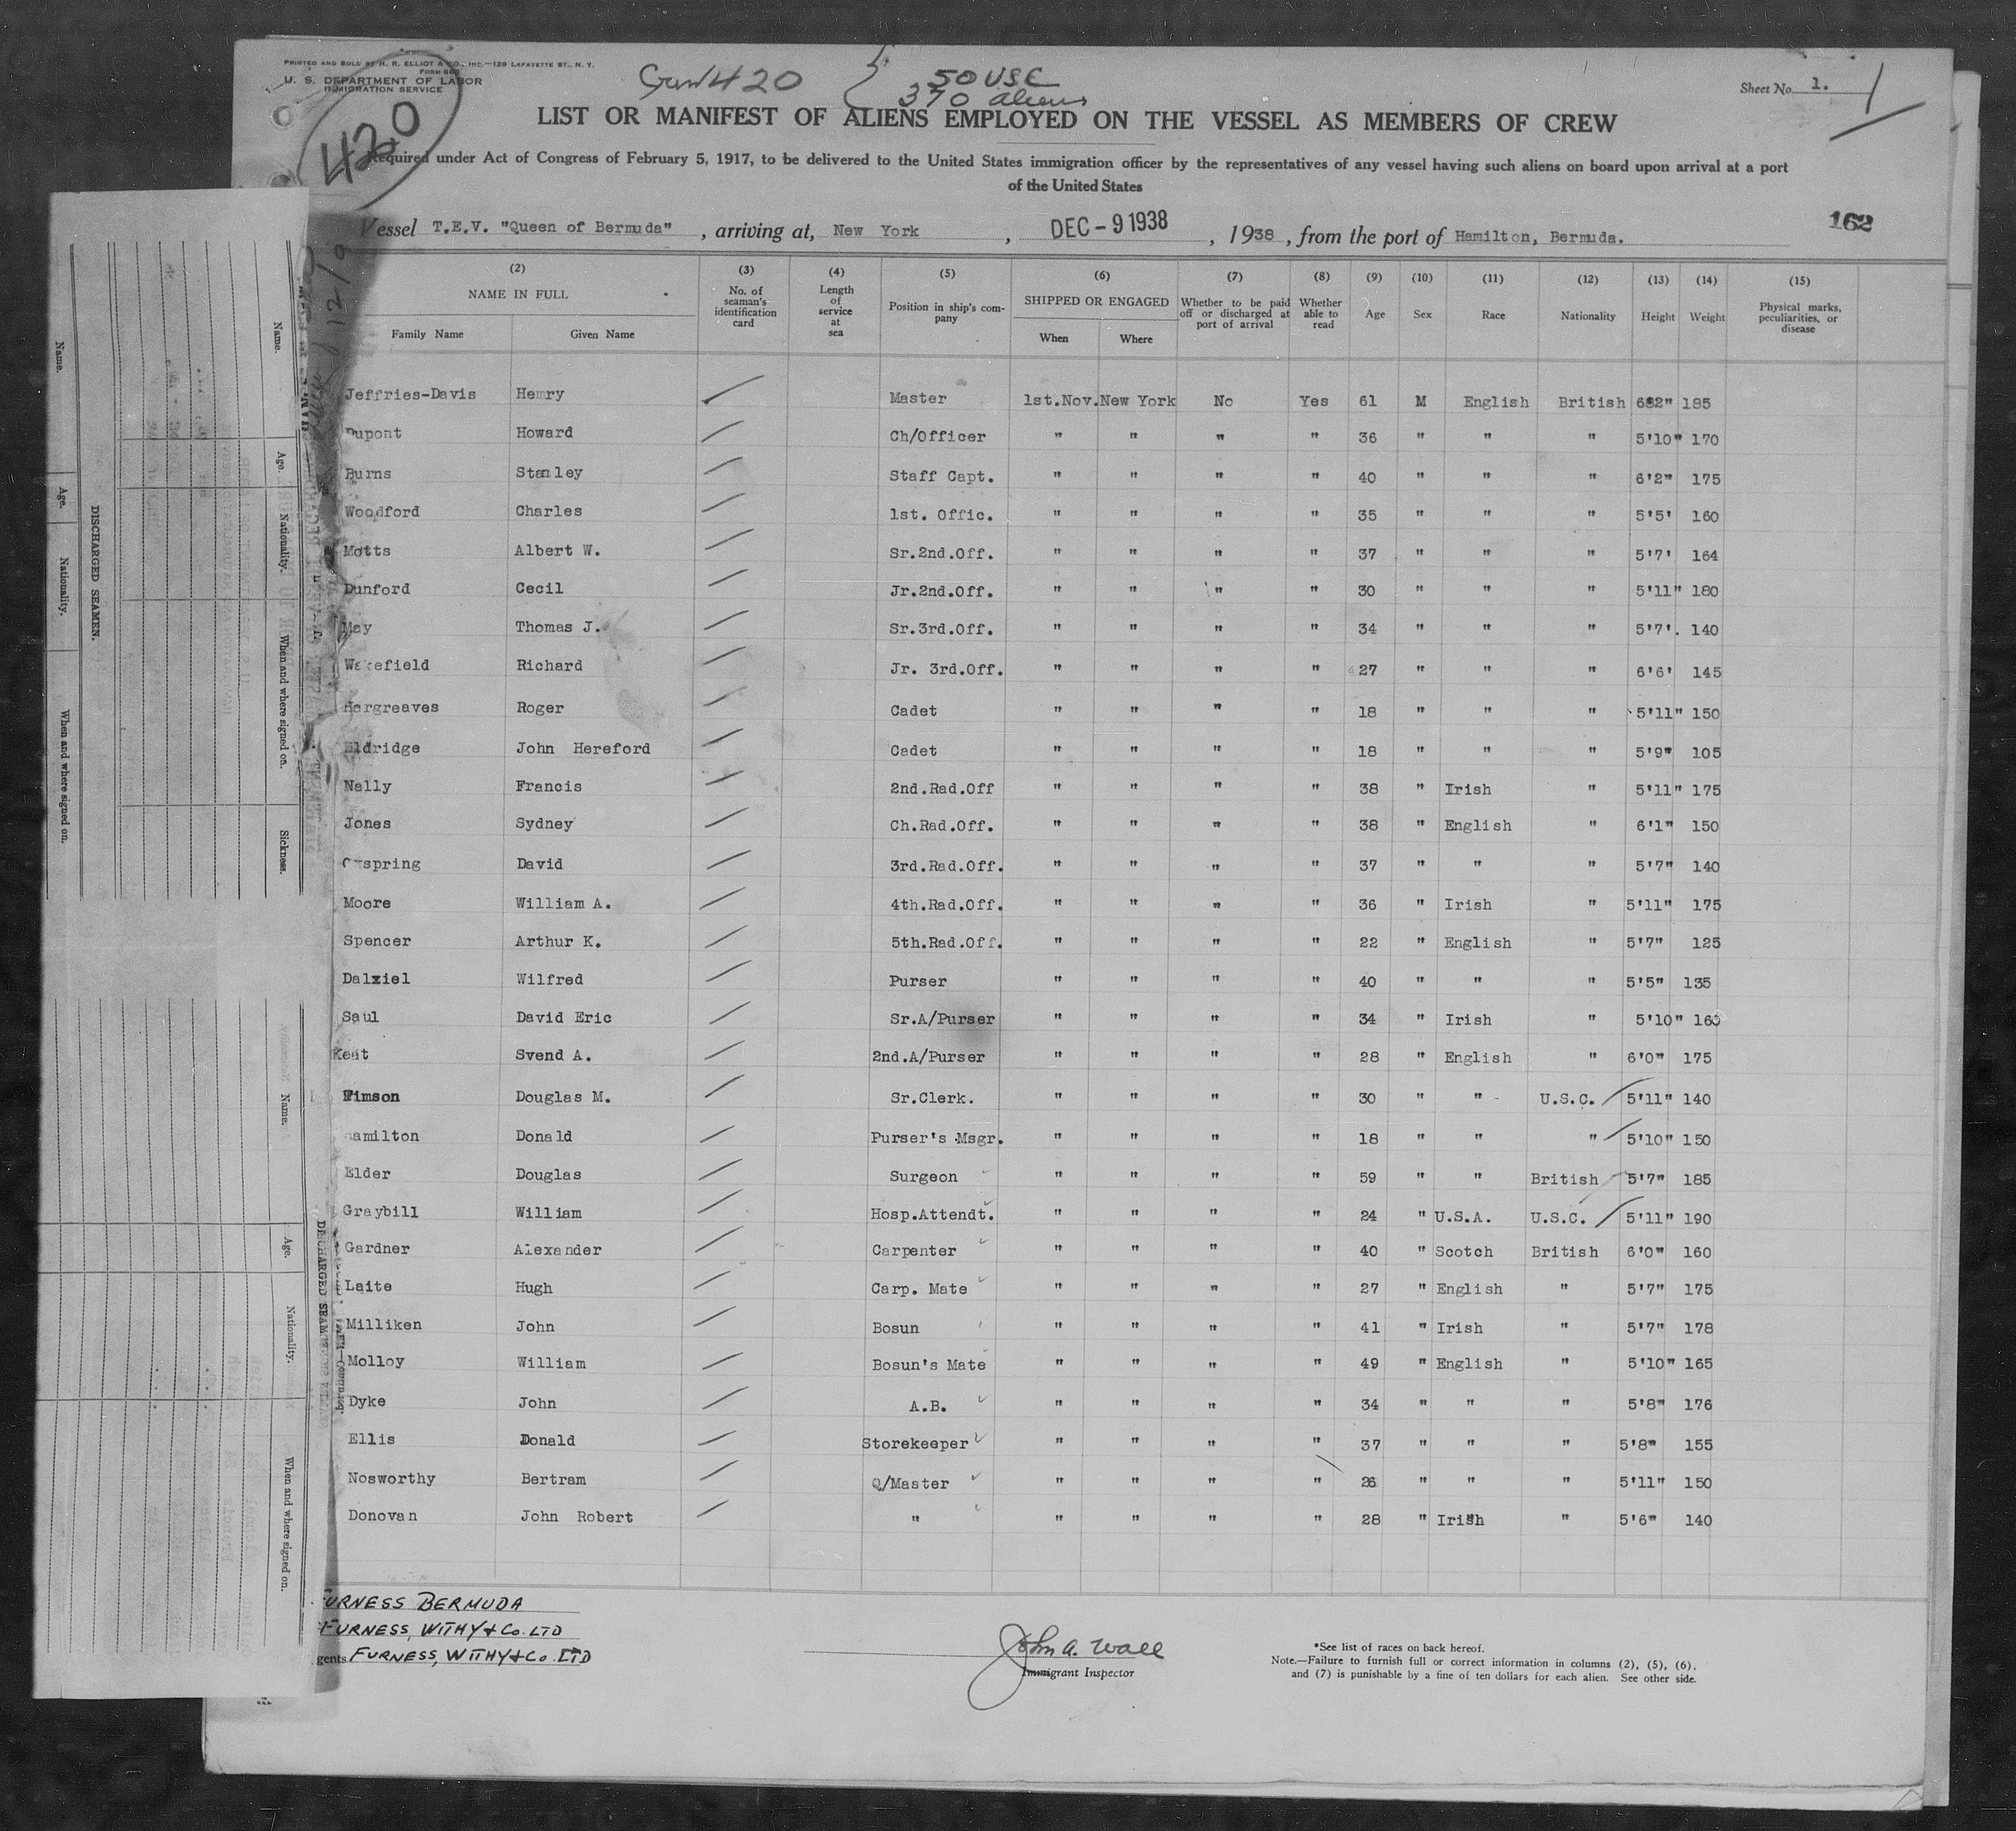 PRINTED AND SOLD BY H. R. ELLIOT & CO., INC.—129 LAFAYETTE ST., N. Y.
FORM 680
U. S. DEPARTMENT OF LABOR
IMMIGRATION SERVICE
420
420 { 50 USC
370 aliens
Sheet No. 1.
LIST OR MANIFEST OF ALIENS EMPLOYED ON THE VESSEL AS MEMBERS OF CREW
Required under Act of Congress of February 5, 1917, to be delivered to the United States immigration officer by the representatives of any vessel having such aliens on board upon arrival at a port
of the United States
Vessel T.E.V. "Queen of Bermuda", arriving at, New York, DEC - 9 1938, 1938, from the port of Hamilton, Bermuda. 162
(2) NAME IN FULL Family Name Given Name
(3) No. of seaman's identification card
(4) Length of service at sea
(5) Position in ship's company
(6) SHIPPED OR ENGAGED When Where
(7) Whether to be paid off or discharged at port of arrival
(8) Whether able to read
(9) Age
(10) Sex
(11) Race
(12) Nationality
(13) Height
(14) Weight
(15) Physical marks, peculiarities, or disease
Jeffries-Davis Henry Master 1st.Nov. New York No Yes 61 M English British 185
Dupont Howard Ch/Officer " " " " 36 " " " 5'10" 170
Burns Stanley Staff Capt. " " " " 40 " " " 6'2" 175
Woodford Charles 1st. Offic. " " " " 35 " " " 5'5' 160
Motts Albert W. Sr.2nd.Off. " " " " 37 " " " 5'7' 164
Dunford Cecil Jr.2nd.Off. " " " " 30 " " " 5'11" 180
May Thomas J. Sr.3rd.Off. " " " " 34 " " " 5'7'. 140
Wakefield Richard Jr. 3rd.Off. " " " " 27 " " " 6'6' 145
Hargreaves Roger Cadet " " " " 18 " " " 5'11" 150
Eldridge John Hereford Cadet " " " " 18 " " " 5'9" 105
Nally Francis 2nd.Rad.Off " " " " 38 " Irish " 5'11" 175
Jones Sydney Ch.Rad.Off. " " " " 38 " English " 6'1" 150
David 3rd.Rad.Off. " " " " 37 " " " 5'7" 140
Moore William A. 4th.Rad.Off. " " " " 36 " Irish " 5'11" 175
Spencer Arthur K. 5th.Rad.Off. " " " " 22 " English " 5'7" 125
Dalziel Wilfred Purser " " " " 40 " " " 5'5" 135
Saul David Eric Sr.A/Purser " " " " 34 " Irish " 5'10" 160
Svend A. 2nd.A/Purser " " " " 28 " English " 6'0" 175
Douglas M. Sr.Clerk. " " " " 30 " " U.S.C. 5'11" 140
Hamilton Donald Purser's Msgr. " " " " 18 " " " 5'10" 150
Elder Douglas Surgeon " " " " 59 " " British 5'7" 185
Graybill William Hosp.Attendt. " " " " 24 " U.S.A. U.S.C. 5'11" 190
Gardner Alexander Carpenter " " " " 40 " Scotch British 6'0" 160
Laite Hugh Carp. Mate " " " " 27 " English " 5'7" 175
Milliken John Bosun " " " " 41 " Irish " 5'7" 178
Molloy William Bosun's Mate " " " " 49 " English " 5'10" 165
Dyke John A.B. " " " " 34 " " " 5'8" 176
Ellis Donald Storekeeper " " " " 37 " " " 5'8" 155
Nosworthy Bertram Q/Master " " " " 26 " " " 5'11" 150
Donovan John Robert " " " " " 28 " Irish " 5'6" 140
FURNESS BERMUDA
FURNESS, WITHY & Co. LTD
gents FURNESS, WITHY & Co. LTD
John A. Wall
Immigrant Inspector
*See list of races on back hereof.
Note.—Failure to furnish full or correct information in columns (2), (5), (6),
and (7) is punishable by a fine of ten dollars for each alien. See other side.
DISCHARGED SEAMEN.
Name. Age. Nationality. When and where signed on.
Name. Age. Nationality. When and where signed on. Sickness.
Name. Age. Nationality. When and where signed on.